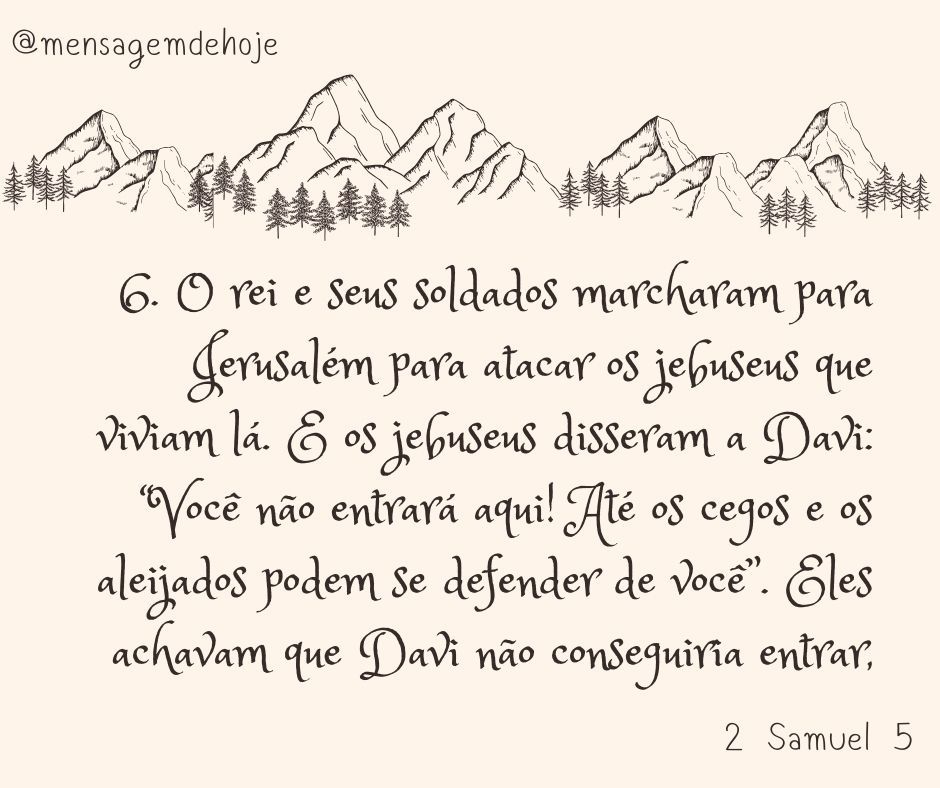 @mensagemdehoje
6. O rei e seus soldados marcharam para
Jerusalém para atacar os jebuseus que
viviam lá. E os jebuseus disseram a Davi:
“Você não entrará aqui! Até os cegos e os
aleijados podem se defender de você”. Eles
achavam que Davi não conseguiria entrar,
2 Samuel 5